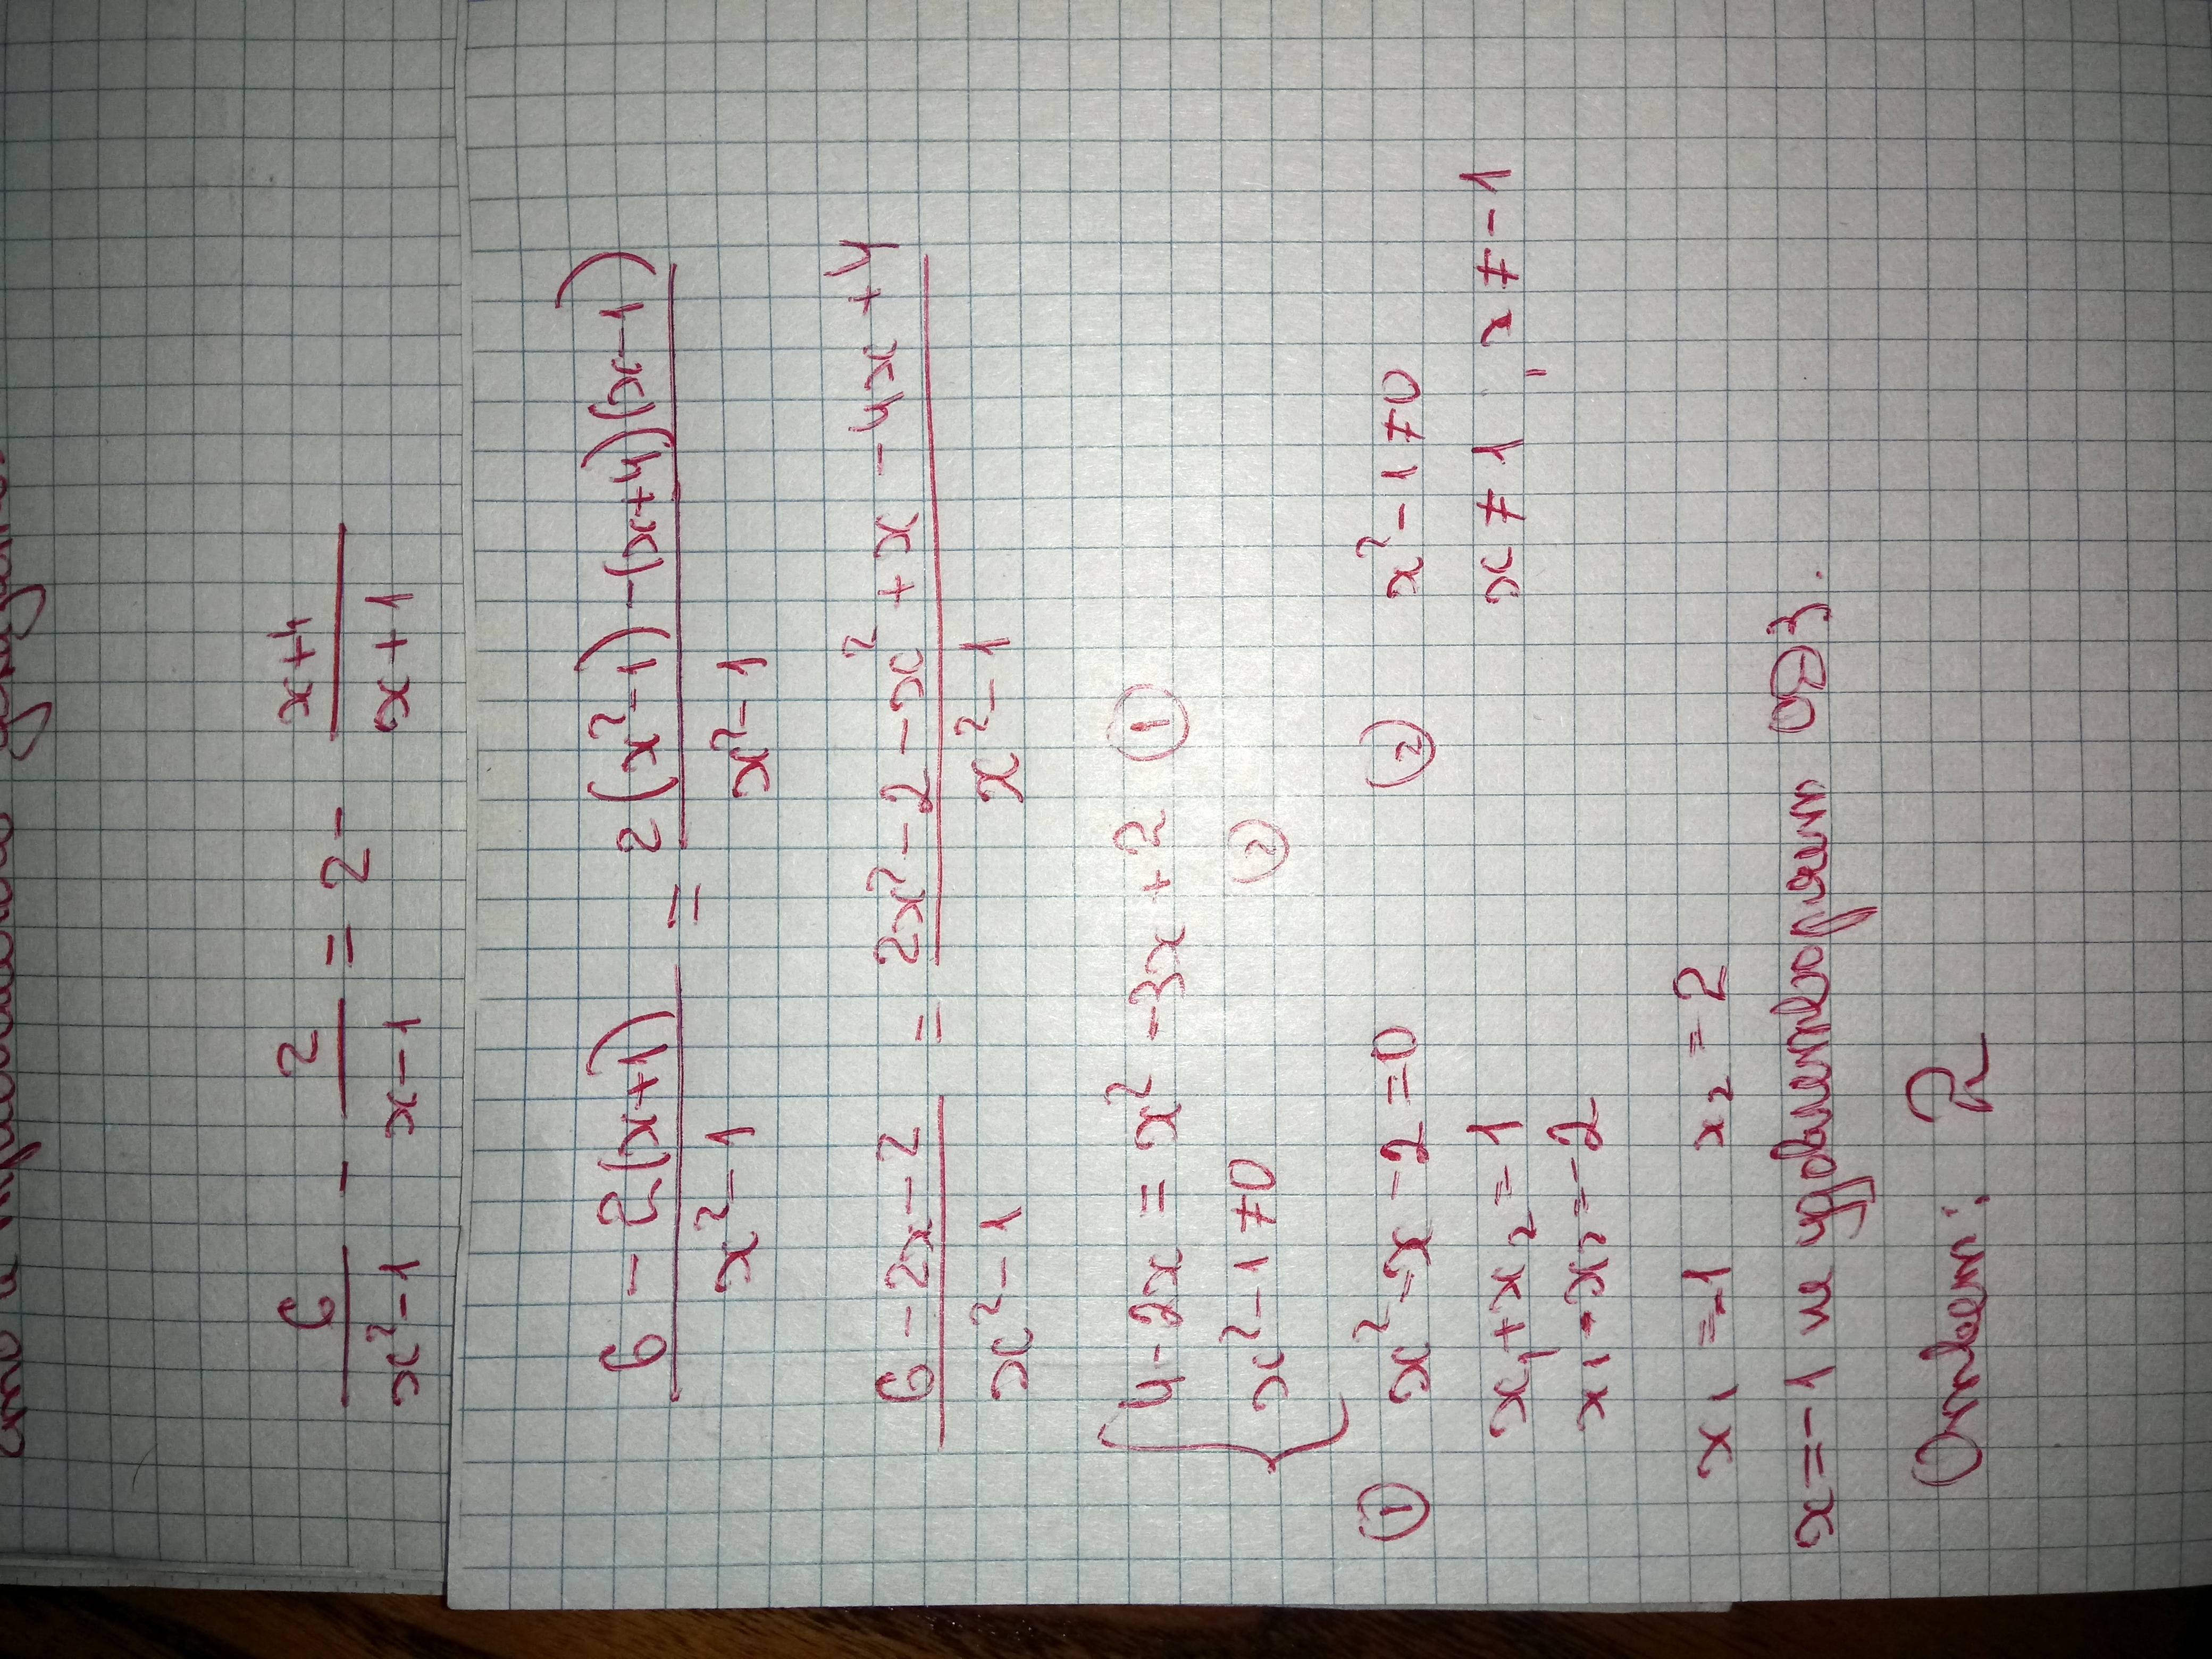 6/(x²-1) - 2/(x-1) = 2 - (x+4)/(x+1)
(6 - 2(x+1))/(x²-1) = (2(x²-1) - (x+4)(x-1))/(x²-1)
(6-2x-2)/(x²-1) = (2x²-2-x²+x-4x+4)/(x²-1)
{ 4-2x = x²-3x+2 ①
x²-1≠0 ②
① x²-x-2=0 ② x²-1≠0
x₁+x₂=1 x≠1, x≠-1
x₁·x₂=-2
x₁=-1 x₂=2
x=-1 не удовлетворяет ОДЗ.
Ответ: 2